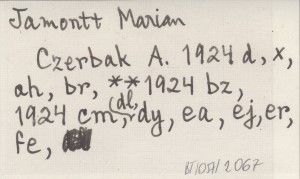 Jamontt Marian
Czerbak A. 1924 d, x,
ah, br, ** 1924 bz,
1924 cm, (dl, dy, ea, ej, er,
fe,
BJ/057/2067